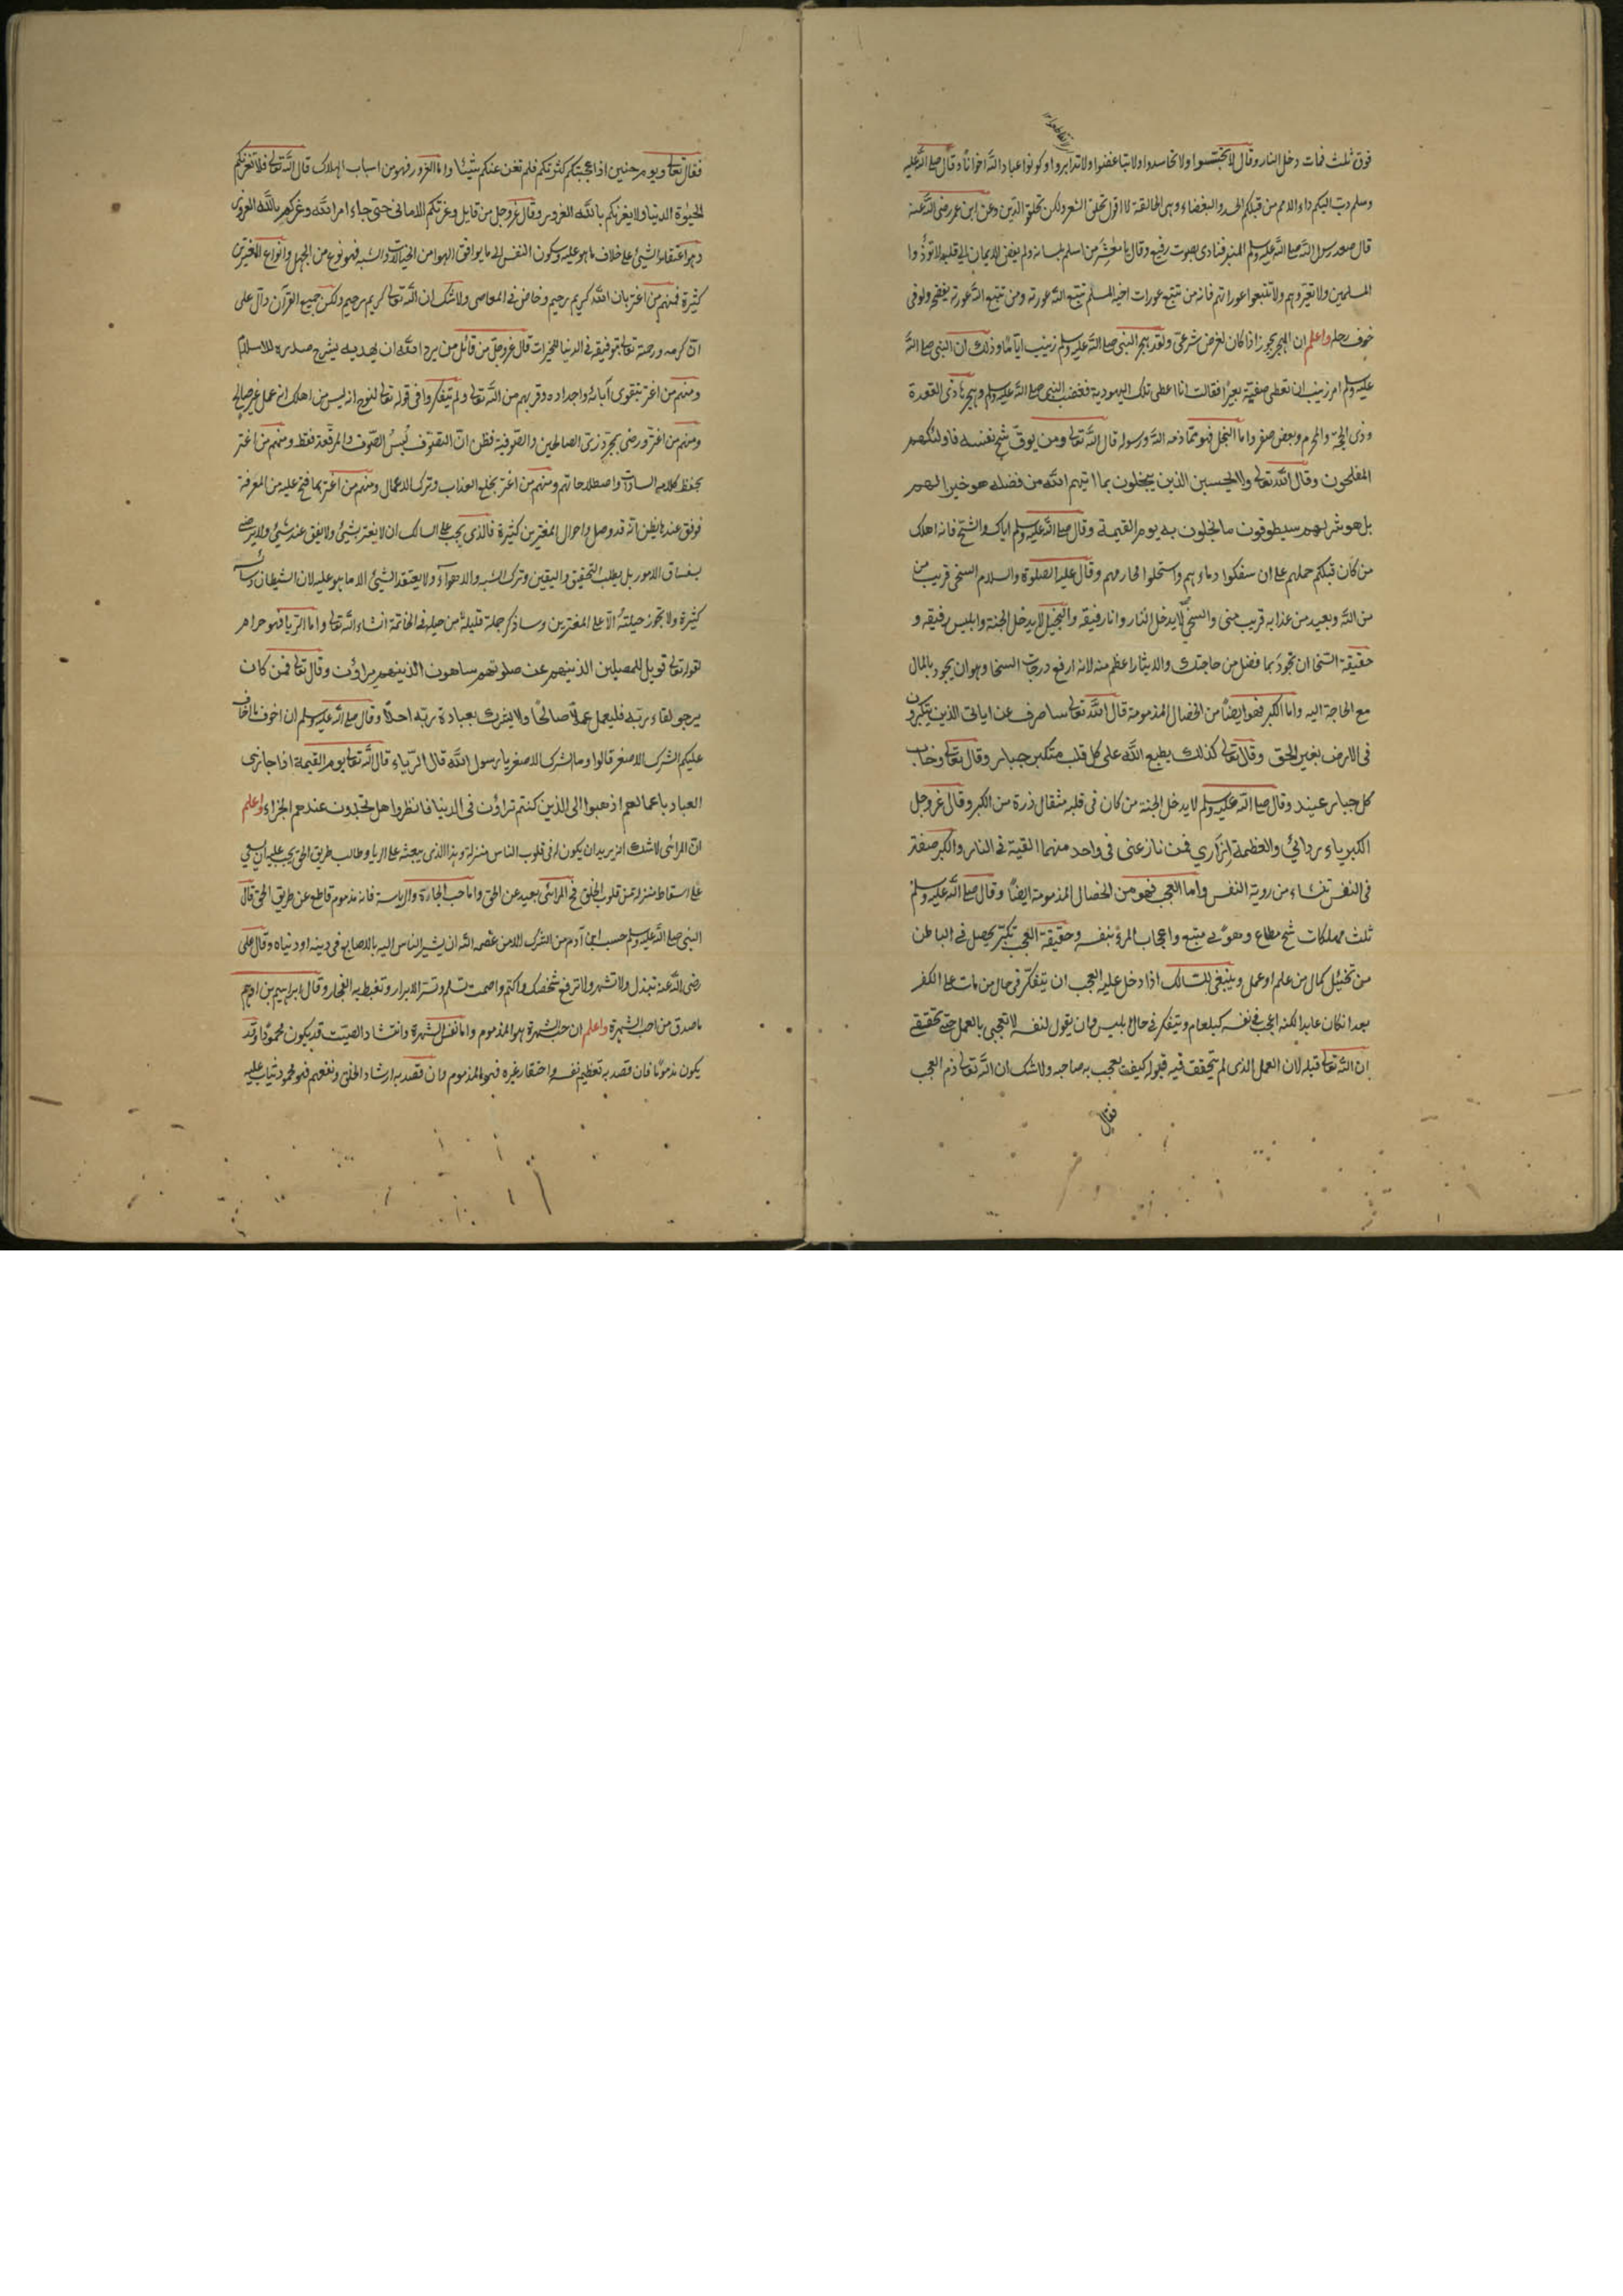 فوق ثلث فمات دخل النار وقال لا تجسسوا ولا تحاسدوا ولا تباغضوا ولا تدابروا وكونوا عباد الله اخوانا وقال صلى الله عليه
وسلم دب اليكم داء الامم من قبلكم الحسد والبغضاء وهي الحالقة لا اقول تحلق الشعر ولكن تحلق الدين وعن ابن عمر رضى الله عنه
قال صعد رسول الله صلى الله عليه وسلم المنبر فنادى بصوت رفيع وقال يا معشر من اسلم بلسانه ولم يفض الايمان الى قلبه لا تؤذوا
المسلمين ولا تعيروهم ولا تتبعوا عوراتهم فانه من تتبع عورات اخيه المسلم تتبع الله عورته ومن تتبع الله عورته يفضحه ولو فى
جوف رحله واعلم ان الهجر يجوز اذا كان لغرض شرعى ولقد هجر النبى صلى الله عليه وسلم زينب اياما وذلك ان النبى صلى الله
عليه وسلم امر زينب ان تعطى صفية بعيرا فقالت انا اعطى تلك اليهودية فغضب النبى صلى الله عليه وسلم وهجرها ذى القعدة
وذى الحجة والمحرم وبعض صفر واما البخل فهو مما ذمه الله ورسوله قال الله تعالى ومن يوق شح نفسه فاولئك هم
المفلحون وقال الله تعالى ولا يحسبن الذين يبخلون بما اتيهم الله من فضله هو خيرا لهم
بل هو شر لهم سيطوقون ما بخلوا به يوم القيمة وقال صلى الله عليه وسلم اياك والشح فانه اهلك
من كان قبلكم حملهم على ان سفكوا دماءهم واستحلوا محارمهم وقال عليه الصلوة والسلام السخى قريب من
من الله وبعيد من عذابه قريب منى والسخى لا يدخل النار وانا رفيقه والبخيل لا يدخل الجنة وابليس رفيقه و
حقيقة السخا ان تجود بما فضل من حاجتك والايثار اعظم منه لانه ارفع درجات السخا وهو ان يجود بالمال
مع الحاجة اليه واما الكبر فهو ايضا من الخصال المذمومة قال الله تعالى ساصرف عن اياتى الذين يتكبرون
فى الارض بغير الحق وقال تعالى كذلك يطبع الله على كل قلب متكبر جبار وقال تعالى وخاب
كل جبار عنيد وقال صلى الله عليه وسلم لا يدخل الجنة من كان فى قلبه مثقال ذرة من الكبر وقال عز وجل
الكبرياء ردائى والعظمة ازارى فمن نازعنى فى واحد منهما القيته فى النار والكبر صفة
فى النفس تنشاء من روية النفس واما العجب فهو من الخصال المذمومة ايضا وقال صلى الله عليه وسلم
ثلث مهلكات شح مطاع وهوى متبع واعجاب المرؤ بنفسه وحقيقة العجب تكبر يحصل فى الباطن
من تخيل كمال من علم او عمل وينبغى للسالك اذا دخل عليه العجب ان يتفكر فى حال من مات على الكفر
بعد ان كان عابدا لكنه اعجب فى نفسه كبلعام ويتفكر فى حال ابليس وان يقول لنفسه لا تعجبى بالعمل حتى تحققى
ان الله تعالى قبله لان العمل الذى لم يتحقق فيه قبوله كيف يعجب به صاحبه ولا شك ان الله تعالى ذم العجب
فقال
فقال تعالى ويوم حنين اذ اعجبتكم كثرتكم فلم تغن عنكم شيئا واما الغرور فهو من اسباب الهلاك قال الله تعالى فلا تغرنكم
الحيوة الدنيا ولا يغرنكم بالله الغرور وقال عز وجل من قايل وغرتكم الامانى حتى جاء امر الله وغركم بالله الغرور
وهو اعتقاد الشيئ على خلاف ما هو عليه وسكون النفس الى ما يوافق الهوا من الخيالات والشبه فهو نوع من الجهل وانواع المغترين
كثيرة فمنهم من اغتر بان الله كريم رحيم وخاض فى المعاصى ولا شك ان الله تعالى كريم رحيم ولكن جميع القرآن دال على
ان كرمه ورحمته تعالى بتوفيقه فى الدنيا للخيرات قال عز وجل من قائل من يرد الله ان يهديه يشرح صدره للاسلام
ومنهم من اغتر بتقوى آبائه واجداده وقربهم من الله تعالى ولم يتفكروا فى قوله تعالى لنوح انه ليس من اهلك انه عمل غير صالح
ومنهم من اغتر ورضى بمجرد زى الصالحين والصوفية فظن ان التصوف لبس الصوف والمرقعة فقط ومنهم من اغتر
بحفظ كلام السادات واصطلاحاتهم ومنهم من اغتر بخلع العذاب وترك الاعمال ومنهم من اغتر بما فتح عليه من المعرفة
فوقف عندها يظن انه قد وصل واحوال المغترين كثيرة فالذى يجب على السالك ان لا يغتر بشيئ ولا يقف عند شيئ ولا يرضى
بفساق الامور بل يطلب التحقيق واليقين وترك الشبه والاهواء ولا يعتقد الشيئ الا ما هو عليه لان الشيطان
كثيرة ولا تجوز حيلته الا على المغترين وساذكر جملة قليلة من حيله فى الخاتمة انشاء الله تعالى واما الريا فهو حرام
لقوله تعالى فويل للمصلين الذينهم عن صلوتهم ساهون الذينهم يراؤن وقال تعالى فمن كان
يرجو لقاء ربه فليعمل عملا صالحا ولا يشرك بعبادة ربه احدا وقال صلى الله عليه وسلم ان اخوف ما اخاف
عليكم الشرك الاصغر قالوا وما الشرك الاصغر يا رسول الله قال الرياء قال الله تعالى يوم القيمة اذا جازى
العباد باعمالهم اذهبوا الى الذين كنتم تراؤن فى الدنيا فانظروا هل تجدون عندهم الجزاء واعلم
ان المرائى لا شك انه يريد ان يكون له فى قلوب الناس منزلة وهذا الذى يبعثه على الريا وطالب طريق الحق يجب عليه ان يسعى
على اسقاط منزلته من قلوب الخلق فح المرائى بعيد عن الحق واما حب الجاه والرياسة فانه مذموم قاطع عن طريق الحق قال
النبى صلى الله عليه وسلم حسب ابن آدم من الشرك الا من عصمه الله ان يشير الناس اليه بالاصابع فى دينه او دنياه وقال على
رضى الله عنه تبذل ولا تشهر ولا ترفع شخصك واكتم واصمت تسلم وتسر الابرار وتغيظ به الفجار وقال ابراهيم بن ادهم
ما صدق من احب الشهرة واعلم ان حب الشهرة هو المذموم واما نفس الشهرة وانتشار الصيت قد يكون محمودا وقد
يكون مذموما فان قصد به تعظيم نفسه واحتقار غيره فهو المذموم وان قصد به ارشاد الخلق ونفعهم فهو محمود يثاب عليه